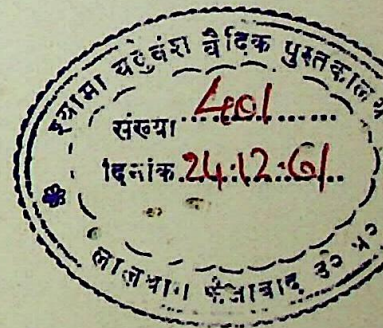 श्यामा यदुवंश वैदिक पुस्तकालय
संख्या 401
दिनांक 24.12.61
लालबाग फैजाबाद उ० प्र०